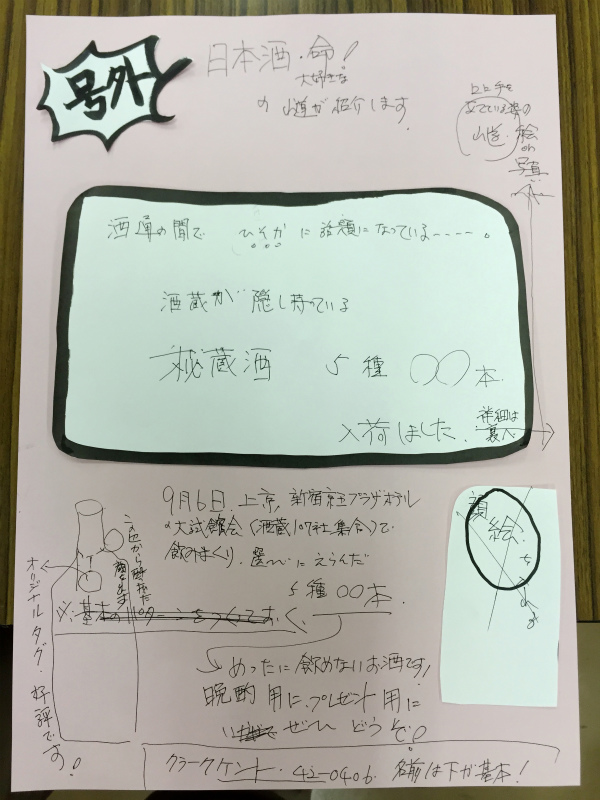 号外
日本酒・命!
大好きな
の 山道が紹介します。
口に手を
あてている姿の
絵
or
写真
酒通の間で ひそかに話題になっている----。
酒蔵が隠し持っている
秘蔵酒 5種 〇〇本。
入荷しました。
詳細は
裏へ
9月6日。上京。新宿京王プラザホテル
の大試飲会(酒蔵107社集合)で
飲みまくり。 にえらんだ
5種〇〇本。
※基本のパターンをつくておく。
オリジナルタグ・好評です!
顔
絵
めったに飲めないお酒です!
晩酌用に。プレゼント用に
ぜひどうぞ!
クラークケント。42-0406。名前は下が基本!